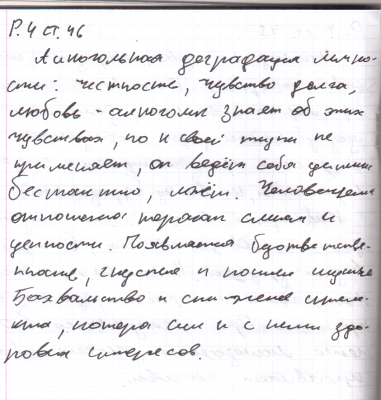 Р. 4 ст. 46
Алкогольная деградация лично-
сти: честность, чувство долга,
любовь - алкоголик знает об этих
чувствах, но к своей жизни не
применяет, он ведёт себя
бестактно, лжёт. Человеческие
отношения теряют смысл и
ценности. Появляется безответствен-
ность, гнусные и пошлые шутки
Бахвальство и снижение
потеря сил и с ними здо-
ровых интересов.